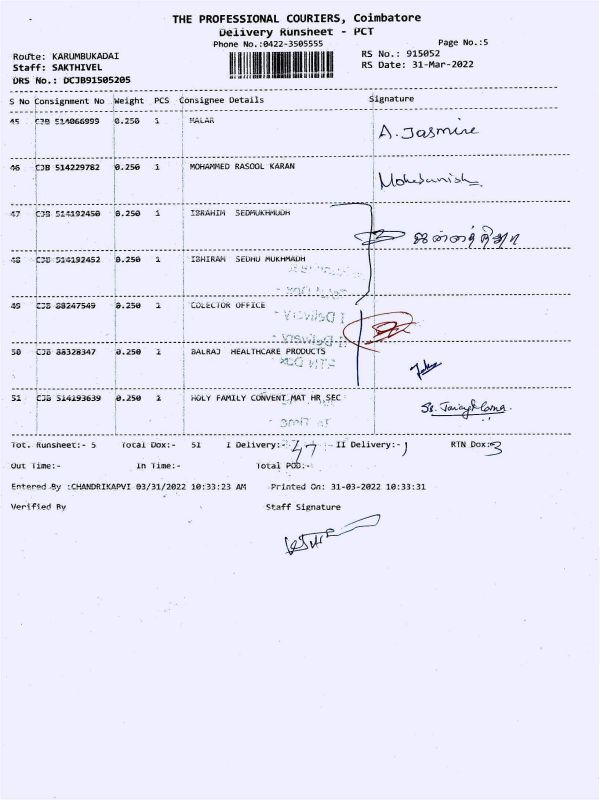 THE PROFESSIONAL COURIERS, Coimbatore
Delivery Runsheet - PCT
Phone No.:0422-3505555 Page No.:5
Route: KARUMBUKADAI RS No.: 915052
Staff: SAKTHIVEL RS Date: 31-Mar-2022
DRS No.: DCJB91505205
S No Consignment No Weight PCS Consignee Details Signature
45 CJB 514066999 0.250 1 MALAR A. Jasmine
46 CJB 514229782 0.250 1 MOHAMMED RASOOL KARAN
47 CJB 514192450 0.250 1 IBRAHIM SEDMUKHMUDH
48 CJB 514192452 0.250 1 IBHIRAM SEDHU MUKHMADH
49 CJB 88247549 0.250 1 COLECTOR OFFICE
50 CJB 88328347 0.250 1 BALRAJ HEALTHCARE PRODUCTS
51 CJB 514193639 0.250 1 HOLY FAMILY CONVENT MAT HR SEC
Tot. Runsheet:- 5 Total Dox:- 51 I Delivery:- 47 II Delivery:- 1 RTN Dox:- 3
Out Time:- In Time:- Total POD:-
Entered By :CHANDRIKAPVI 03/31/2022 10:33:23 AM Printed On: 31-03-2022 10:33:31
Verified By Staff Signature